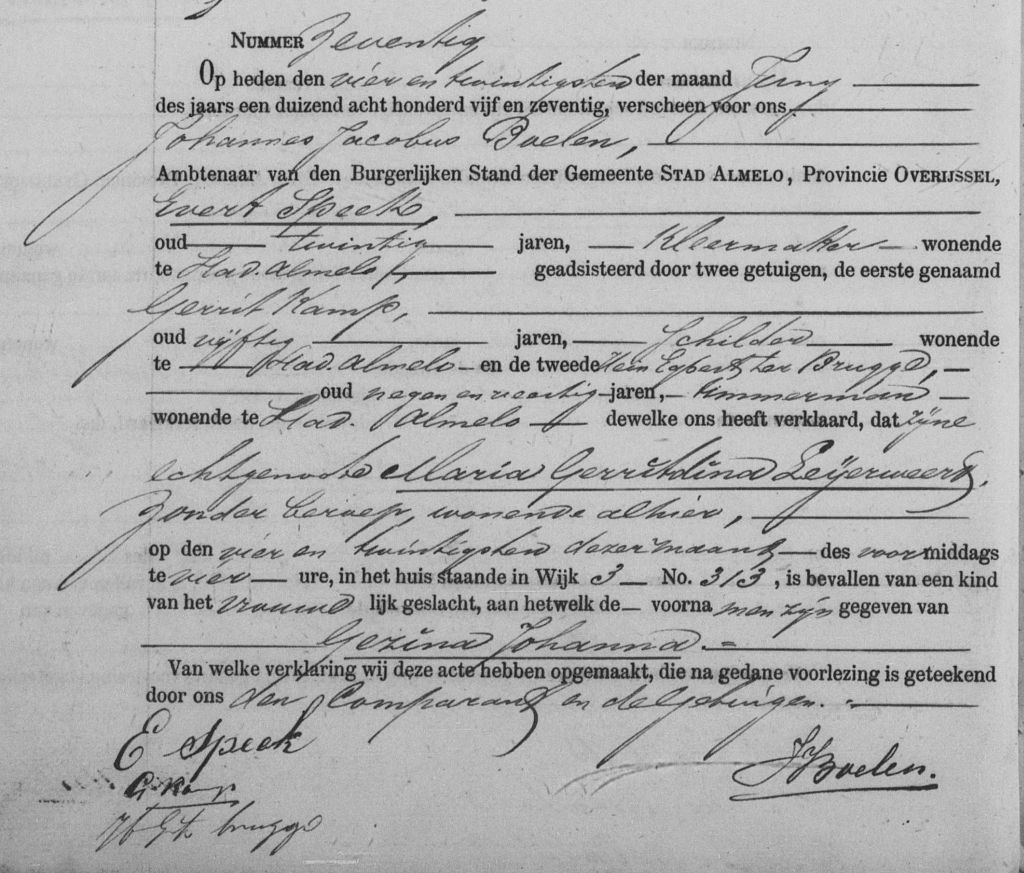 NUMMER Zeventig
Op heden den vier en twintigsten der maand Juny
des jaars een duizend acht honderd vijf en zeventig, verscheen voor ons,
Johannes Jacobus Boelen,
Ambtenaar van den Burgerlijken Stand der Gemeente STAD ALMELO, Provincie OVERIJSSEL,
Evert Speek,
oud twintig jaren, Kleermaker wonende
te Stad. Almelo, geadsisteerd door twee getuigen, de eerste genaamd
Gerrit Kamp,
oud vijftig jaren, Schilder wonende
te Stad. Almelo en de tweede Hein Egbert ter Brugge,
oud negen en veertig jaren, timmerman
wonende te Stad. Almelo dewelke ons heeft verklaard, dat zijne
echtgenoote Maria Gerritdina Leijerweerd,
zonder beroep, wonende alhier,
op den vier en twintigsten dezer maand des voormiddags
te vier ure, in het huis staande in Wijk 3 No. 313, is bevallen van een kind
van het vrouwelijk geslacht, aan hetwelk de voornamen zijn gegeven van
Gezina Johanna.
Van welke verklaring wij deze acte hebben opgemaakt, die na gedane voorlezing is geteekend
door ons den Comparant en de getuigen.
E Speek
JJBoelen.
G. Kamp
H E t brugge